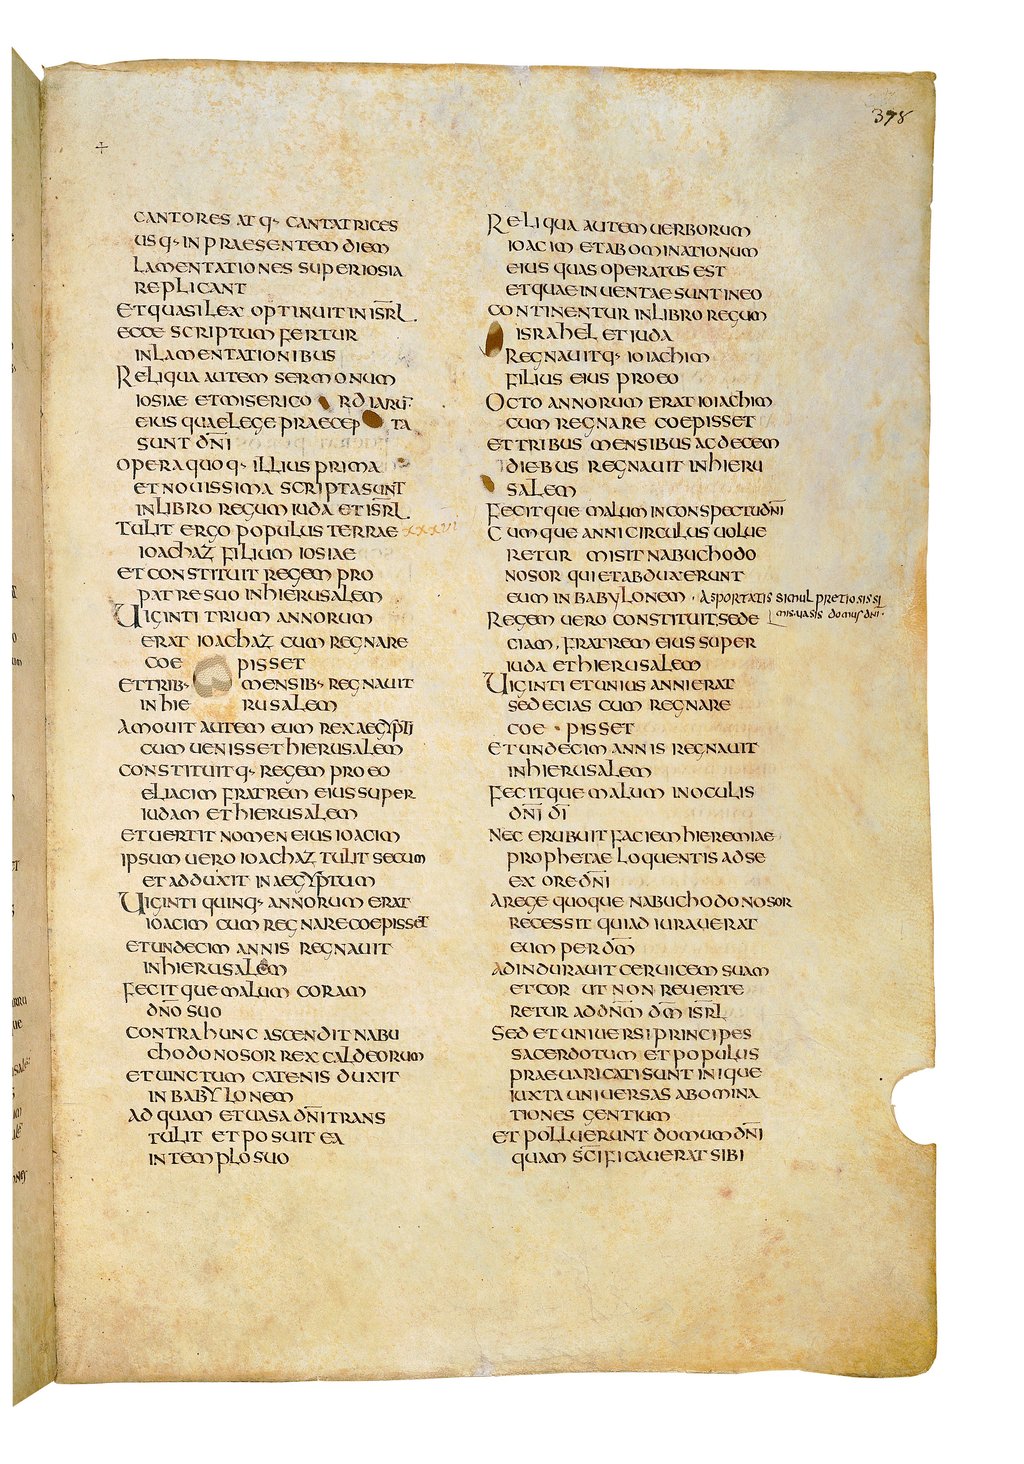 378
+
CANTORES ATQ· CANTATRICES
USQ· IN PRAESENTEM DIEM
LAMENTATIONES SUPER IOSIA
REPLICANT
ET QUASI LEX OPTINUIT IN ISRL̅.
ECCE SCRIPTUM FERTUR
IN LAMENTATIONIBUS
RELIQUA AUTEM SERMONUM
IOSIAE ET MISERICORDIARU̅
EIUS QUAE LEGE PRAECEPTA
SUNT DN̅I
OPERA QUOQ· ILLIUS PRIMA
ET NOUISSIMA SCRIPTA SUNT
IN LIBRO REGUM IUDA ET ISRL̅.
TULIT ERGO POPULUS TERRAE XXXVI
IOACHAZ FILIUM IOSIAE
ET CONSTITUIT REGEM PRO
PATRE SUO IN HIERUSALEM
UIGINTI TRIUM ANNORUM
ERAT IOACHAZ CUM REGNARE
COEPISSET
ET TRIB· MENSIB· REGNAUIT
IN HIERUSALEM
AMOUIT AUTEM EUM REX AEGYPTI
CUM UENISSET HIERUSALEM
CONSTITUITQ· REGEM PRO EO
ELIACIM FRATREM EIUS SUPER
IUDAM ET HIERUSALEM
ET UERTIT NOMEN EIUS IOACIM
IPSUM UERO IOACHAZ TULIT SECUM
ET ADDUXIT IN AEGYPTUM
UIGINTI QUINQ· ANNORUM ERAT
IOACIM CUM REGNARE COEPISSET
ET UNDECIM ANNIS REGNAUIT
IN HIERUSALEM
FECITQUE MALUM CORAM
DN̅O SUO
CONTRA HUNC ASCENDIT NABU
CHODONOSOR REX CALDEORUM
ET UINCTUM CATENIS DUXIT
IN BABYLONEM
AD QUAM ET UASA DN̅I TRANS
TULIT ET POSUIT EA
IN TEMPLO SUO
RELIQUA AUTEM UERBORUM
IOACIM ET ABOMINATIONUM
EIUS QUAS OPERATUS EST
ET QUAE INUENTAE SUNT IN EO
CONTINENTUR IN LIBRO REGUM
ISRAHEL ET IUDA
REGNAUITQ· IOIACHIM
FILIUS EIUS PRO EO
OCTO ANNORUM ERAT IOIACHIM
CUM REGNARE COEPISSET
ET TRIBUS MENSIBUS AC DECEM
DIEBUS REGNAUIT IN HIERU
SALEM
FECITQUE MALUM IN CONSPECTU DN̅I
CUMQUE ANNI CIRCULUS UOLUE
RETUR MISIT NABUCHODO
NOSOR QUI ET ABDUXERUNT
EUM IN BABYLONEM · ASPORTATIS SIMUL PRETIOSISSI
MIS UASIS DOMUS DN̅I·
REGEM UERO CONSTITUIT SEDE
CIAM, FRATREM EIUS SUPER
IUDA ET HIERUSALEM
UIGINTI ET UNIUS ANNI ERAT
SEDECIAS CUM REGNARE
COEPISSET
ET UNDECIM ANNIS REGNAUIT
IN HIERUSALEM
FECITQUE MALUM IN OCULIS
DN̅I D̅I
NEC ERUBUIT FACIEM HIEREMIAE
PROPHETAE LOQUENTIS AD SE
EX ORE DN̅I
A REGE QUOQUE NABUCHODONOSOR
RECESSIT QUI ADIURAUERAT
EUM PER D̅M
AD INDURAUIT CERUICEM SUAM
ET COR UT NON REUERTE
RETUR AD DN̅M D̅M ISRL̅
SED ET UNIUERSI PRINCIPES
SACERDOTUM ET POPULUS
PRAEUARICATI SUNT INIQUE
IUXTA UNIUERSAS ABOMINA
TIONES GENTIUM
ET POLLUERUNT DOMUM DN̅I
QUAM SC̅IFICAUERAT SIBI